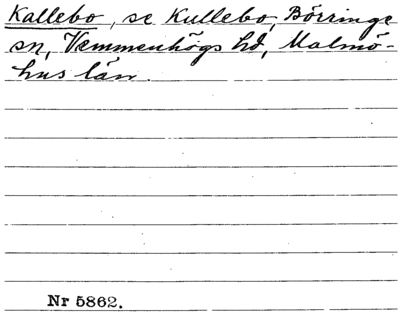 Kallebo, se Kullebo, Börringe
sn, Vemmenhögs hd, Malmö-
hus län.
Nr 5862.